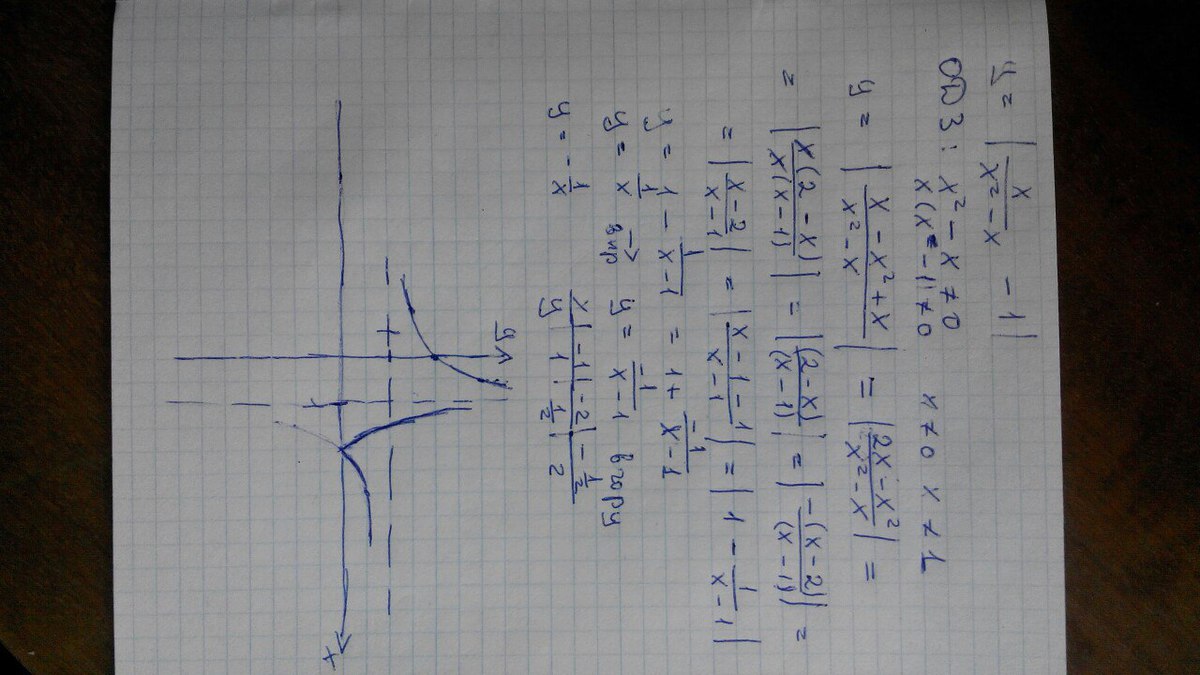 y = | x/(x² - x) - 1 |
ОДЗ: x² - x ≠ 0
x(x - 1) ≠ 0 x ≠ 0 x ≠ 1
y = | (x - x² + x)/(x² - x) | = | (2x - x²)/(x² - x) | =
= | x(2 - x)/x(x - 1) | = | (2 - x)/(x - 1) | = | -(x - 2)/(x - 1) | =
= | (x - 2)/(x - 1) | = | (x - 1 - 1)/(x - 1) | = | 1 - 1/(x - 1) |
y = 1 - 1/(x - 1) = 1 + -1/(x - 1)
y = 1/x → впр y = -1/(x - 1) вгору
y = - 1/x
x | -1 | -2 | -1/2
y | 1 | 1/2 | 2
y
x